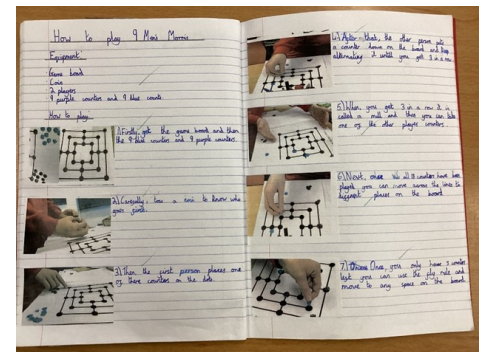 How to play 9 Men's Morris
Equipment
Game board
Coin
2 players
9 purple counters and 9 blue counts
How to play
1) Firstly, get the game board and then
the 9 blue counters and 9 purple counters.
2) Carefully, toss a coin to know who
goes first.
3) Then the first person places one
of there counters on the dots.
4) After that, the other person puts
a counter down on the board and keep
alternating it until you get 3 in a row.
5) When, you get 3 in a row it is
called a mill and then you can take
one of the other player counters.
6) Next, once all 18 counters have been
played you can move across the lines to
different places on the board.
7) Once, you only have 3 counters
left you can use the fly rule and
move to any space on the board.